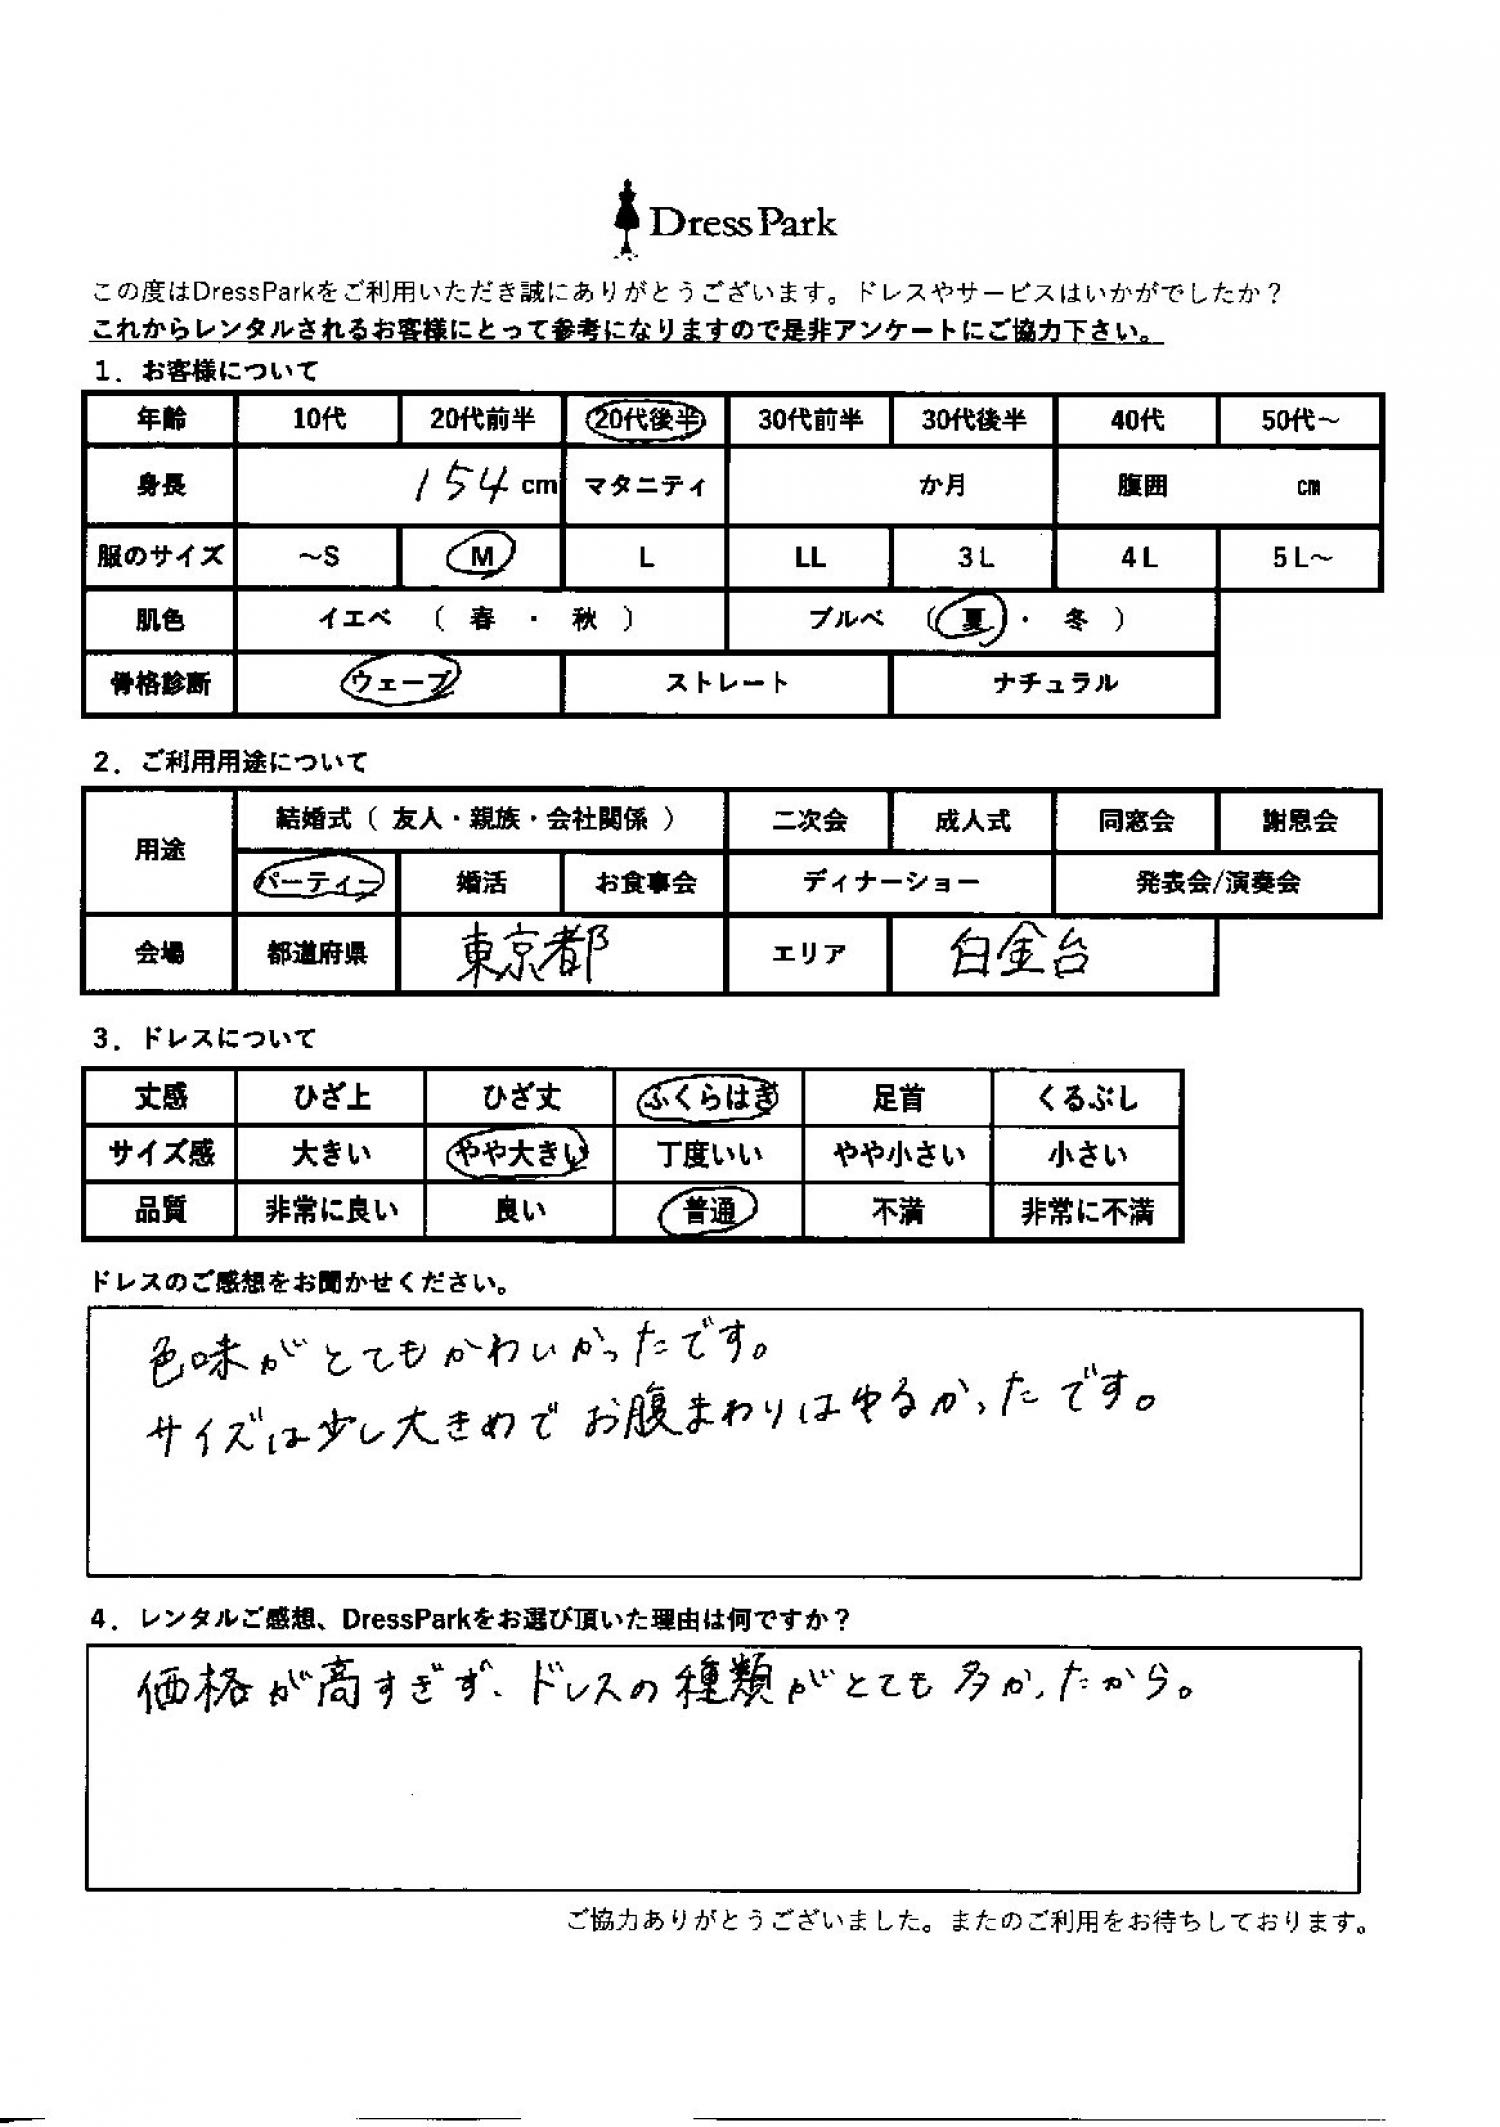 Dress Park
この度はDressParkをご利用いただき誠にありがとうございます。ドレスやサービスはいかがでしたか？
これからレンタルされるお客様にとって参考になりますので是非アンケートにご協力下さい。
1．お客様について
年齢 10代 20代前半 20代後半 30代前半 30代後半 40代 50代～
身長 154 cm マタニティ か月 腹囲 cm
服のサイズ ～S M L LL 3L 4L 5L～
肌色 イエベ （ 春 ・ 秋 ） ブルベ （ 夏 ・ 冬 ）
骨格診断 ウェーブ ストレート ナチュラル
2．ご利用用途について
用途 結婚式（ 友人・親族・会社関係 ） 二次会 成人式 同窓会 謝恩会
パーティー 婚活 お食事会 ディナーショー 発表会/演奏会
会場 都道府県 東京都 エリア 白金台
3．ドレスについて
丈感 ひざ上 ひざ丈 ふくらはぎ 足首 くるぶし
サイズ感 大きい やや大きい 丁度いい やや小さい 小さい
品質 非常に良い 良い 普通 不満 非常に不満
ドレスのご感想をお聞かせください。
色味がとてもかわいかったです。
サイズは少し大きめでお腹まわりはゆるかったです。
4．レンタルご感想、DressParkをお選び頂いた理由は何ですか？
価格が高すぎず、ドレスの種類がとても多かったから。
ご協力ありがとうございました。またのご利用をお待ちしております。